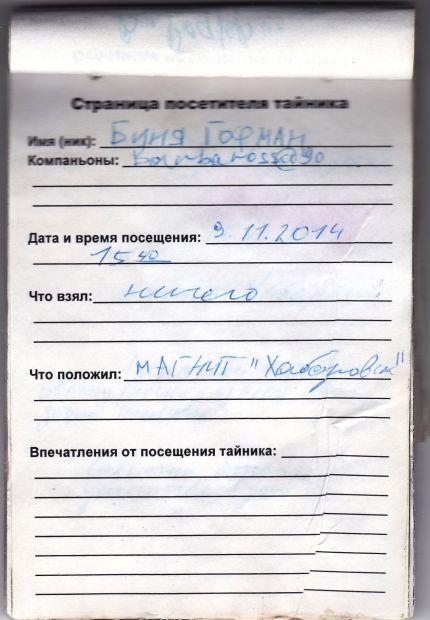 Страница посетителя тайника
Имя (ник): Биня Гофман
Компаньоны: Barbarossa90
Дата и время посещения: 9.11.2014
15 40
Что взял: ничего
Что положил: МАГНИТ "Хабаровск"
Впечатления от посещения тайника: